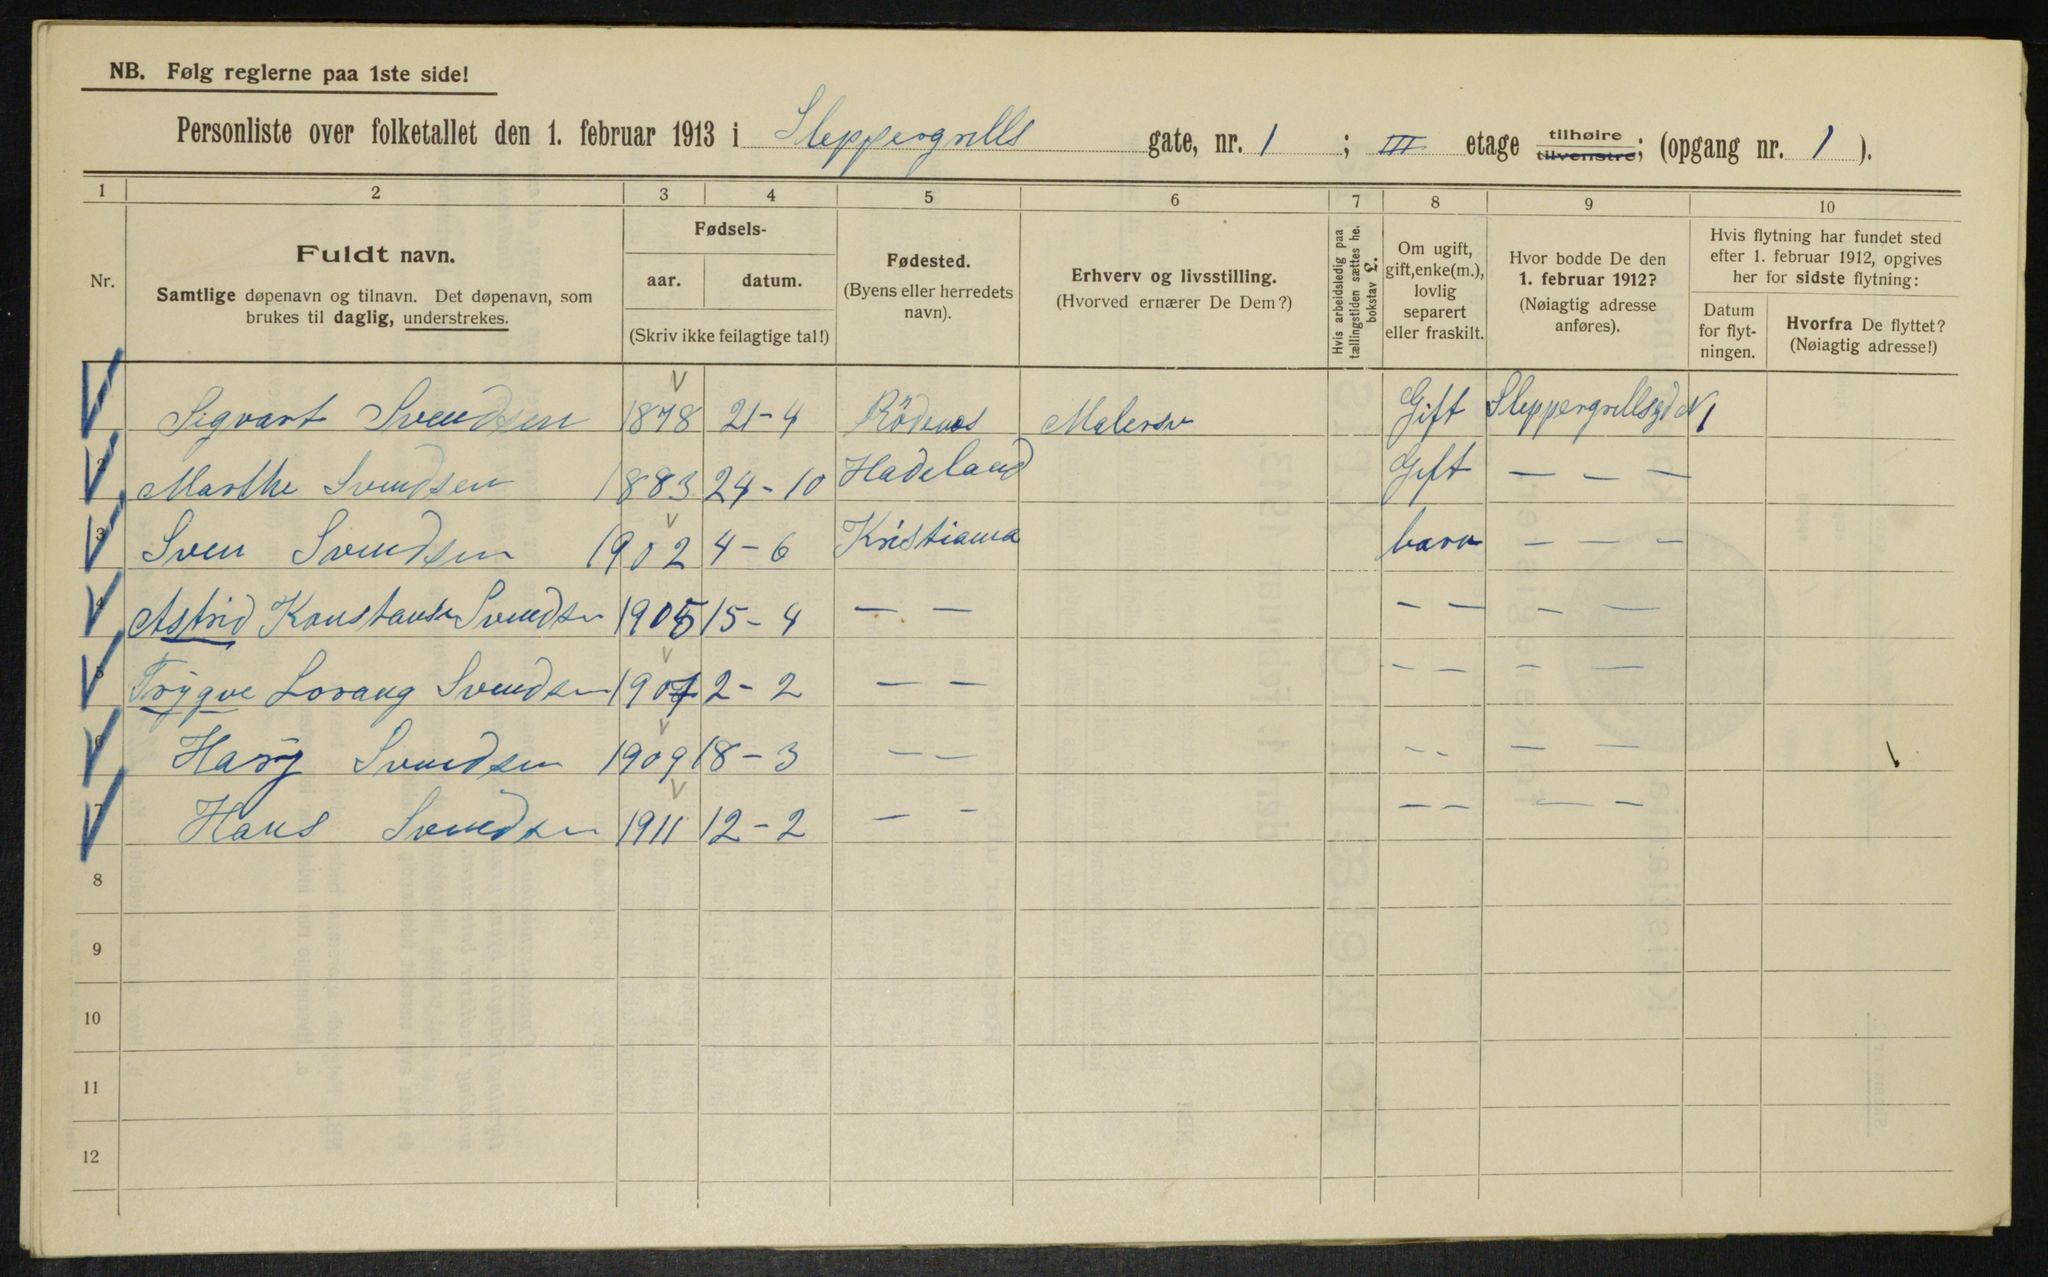 NB. Følg reglerne paa 1ste side!
Personliste over folketallet den 1. februar 1913 i Sleppergrells gate, nr. 1 ; III etage tilhøire tilvenstre; (opgang nr. 1 ).
1 2 3 4 5 6 7 8 9 10
Nr.
Fuldt navn.
Samtlige døpenavn og tilnavn. Det døpenavn, som
brukes til daglig, understrekes.
Fødsels-
aar. datum.
(Skriv ikke feilagtige tal!)
Fødested.
(Byens eller herredets
navn).
Erhverv og livsstilling.
(Hvorved ernærer De Dem?)
Hvis arbeidsledig paa
tællingstiden sættes he.
bokstav £.
Om ugift,
gift, enke(m.),
lovlig
separert
eller fraskilt.
Hvor bodde De den
1. februar 1912?
(Nøiagtig adresse
anføres).
Hvis flytning har fundet sted
efter 1. februar 1912, opgives
her for sidste flytning:
Datum
for flyt-
ningen.
Hvorfra De flyttet?
(Nøiagtig adresse!)
Sigvart Svendsen 1878 21-4 Rödenes Malersv Gift Sleppergrellsgd N 1
2 Marthe Svendsen 1883 24-10 Hadeland Gift — — —
3 Sven Svendsen 1902 4-6 Kristiania barn — — —
4 Astrid Konstanse Svendsen 1905 15-4 — — — — — —
5 Trygve Lorang Svendsen 1907 2-2 — — — — — —
6 Harry Svendsen 1909 18-3 — — — — — —
7 Hans Svendsen 1911 12-2 — — — — — —
8
9
10
11
12